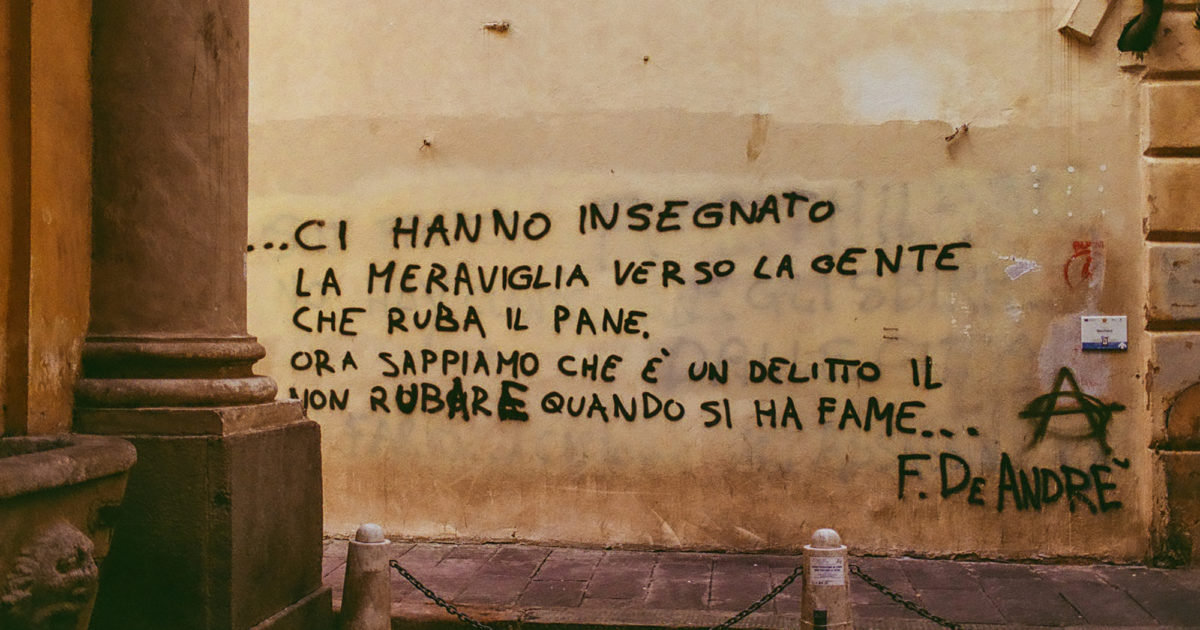 ...CI HANNO INSEGNATO
LA MERAVIGLIA VERSO LA GENTE
CHE RUBA IL PANE.
ORA SAPPIAMO CHE È UN DELITTO IL
NON RUBARE QUANDO SI HA FAME...
A
F. De ANDRÈ